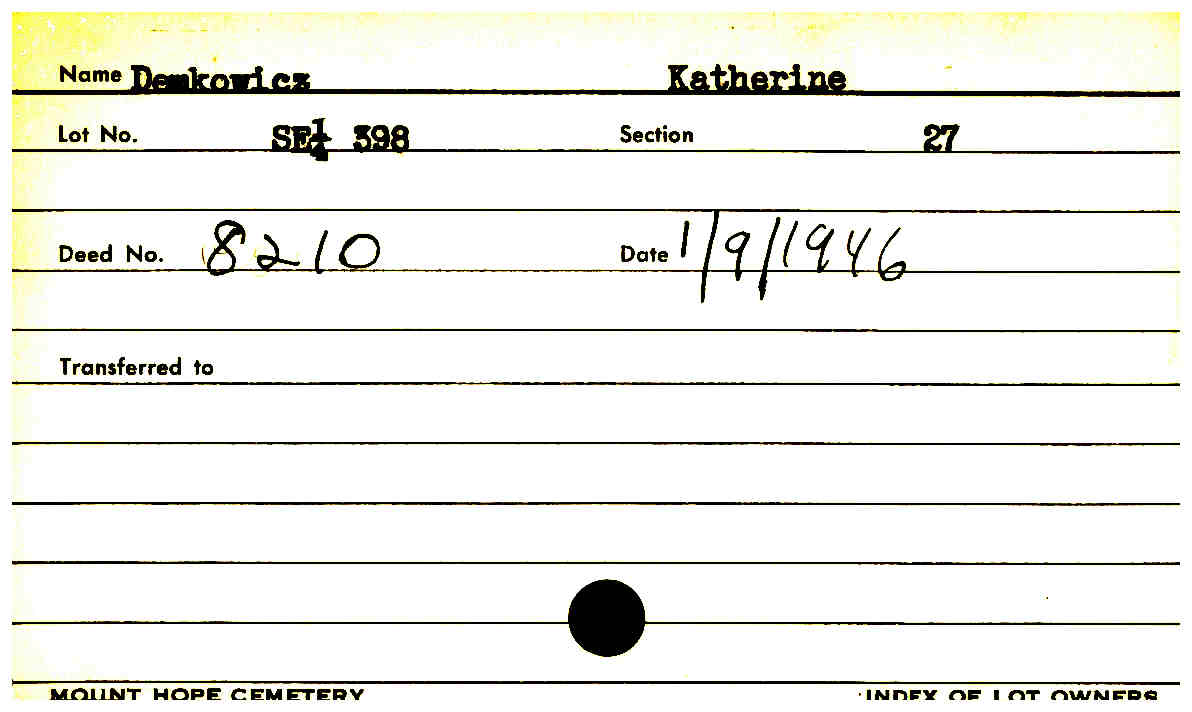 Name Demkowicz Katherine
Lot No. SE¼ 398 Section 27
Deed No. 8210 Date 1/9/1946
Transferred to
MOUNT HOPE CEMETERY INDEX OF LOT OWNERS